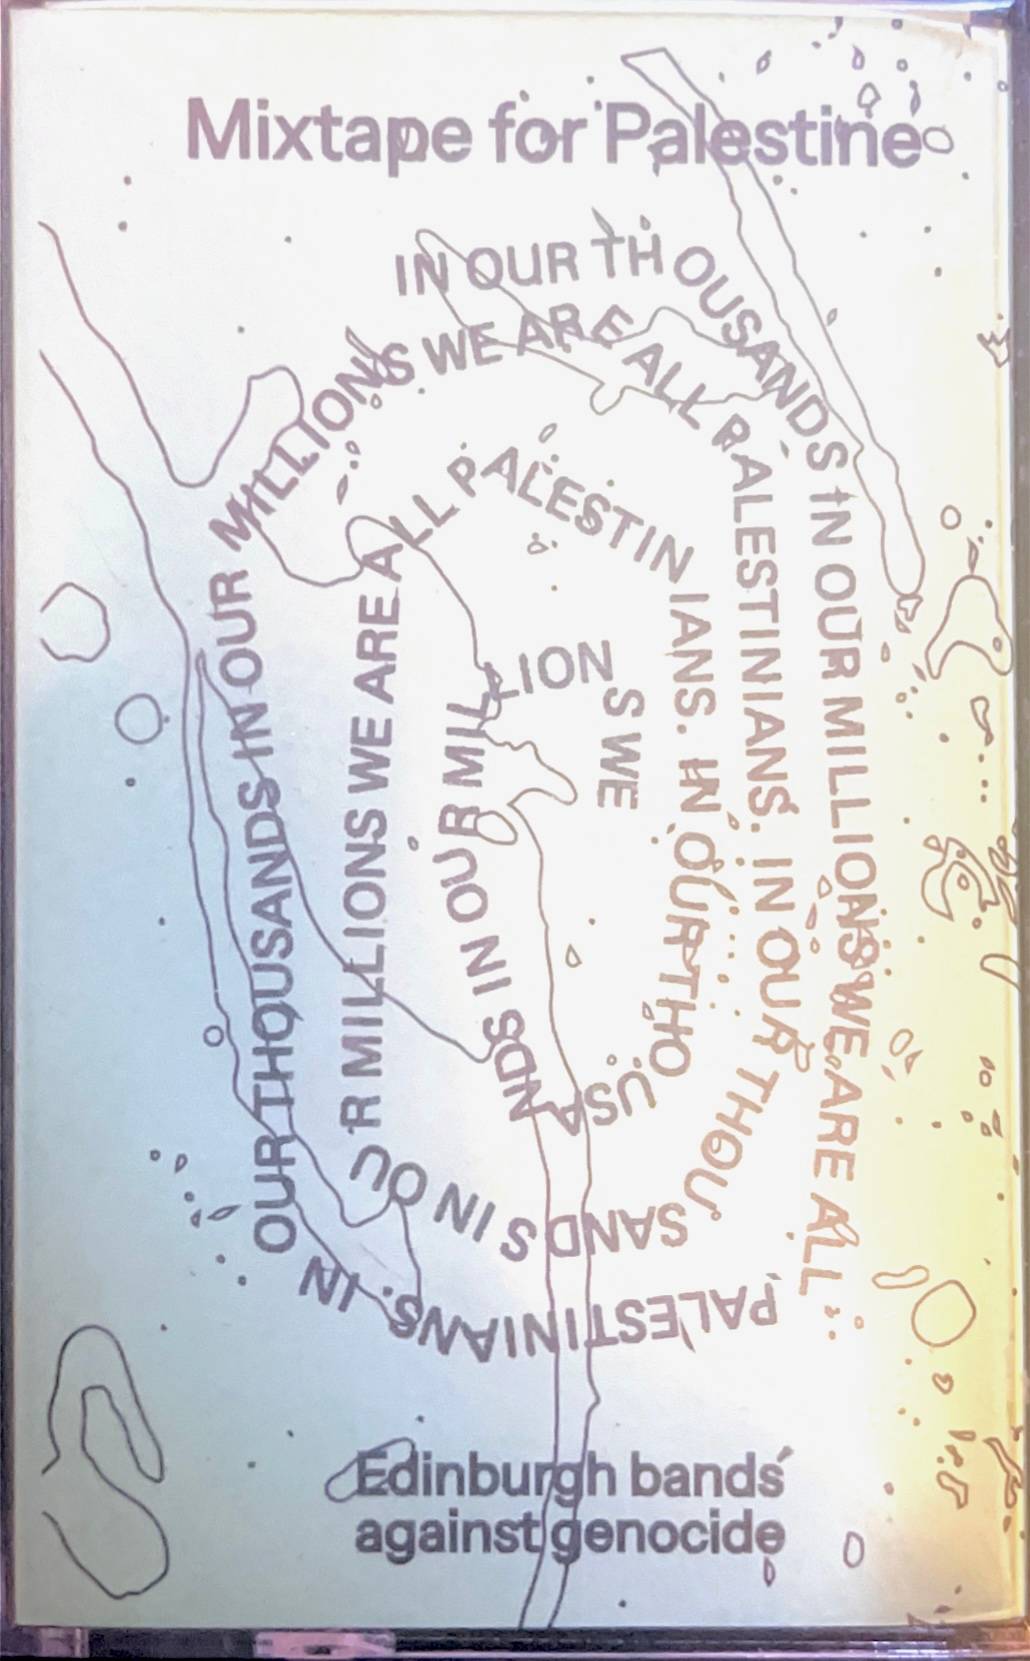 Mixtape for Palestine
IN OUR THOUSANDS IN OUR MILLIONS WE ARE ALL PALESTINIANS. IN OUR THOUSANDS IN OUR MILLIONS WE ARE ALL PALESTINIANS. IN OUR THOUSANDS IN OUR MILLIONS WE ARE ALL PALESTINIANS. IN OUR THOUSANDS IN OUR MILLIONS WE
Edinburgh bands
against genocide